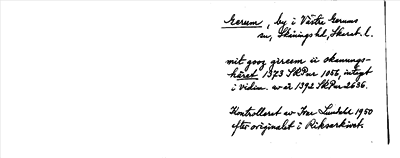 Gerum, by i Västra Gerums
sn, Skånings hd, Skarab. l.
mit gooz girreem ii skanungs-
häret 1373 SRPur 1056, intaget
i vidim. av år 1392 SRPur 2636.
Kontrollerat av Ivar Lundahl 1950
efter originalet i Riksarkivet.